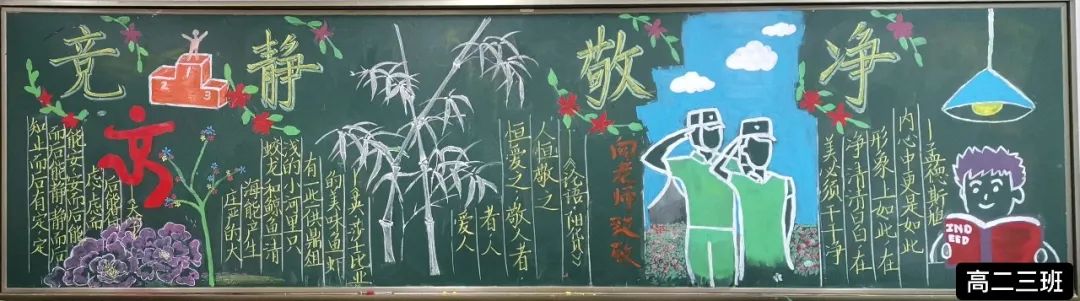 竞
静
敬
净
2
1
3
知止而后有定 定
而后能静 静而后
能安 安而后能
虑 虑而
后能得
庄严的大
海能产生
蛟龙和鲸鱼 清
浅的小河里只
有一些供鼎俎
的美味鱼虾
莎士比亚
爱人
者 人
恒爱之 敬人者
人恒敬之
《论语·阳货》
向老师致敬
美必须干干净
净 清清白白 在
形象上如此 在
内心中更是如此
—孟德斯鸠
IND
EED
高二三班